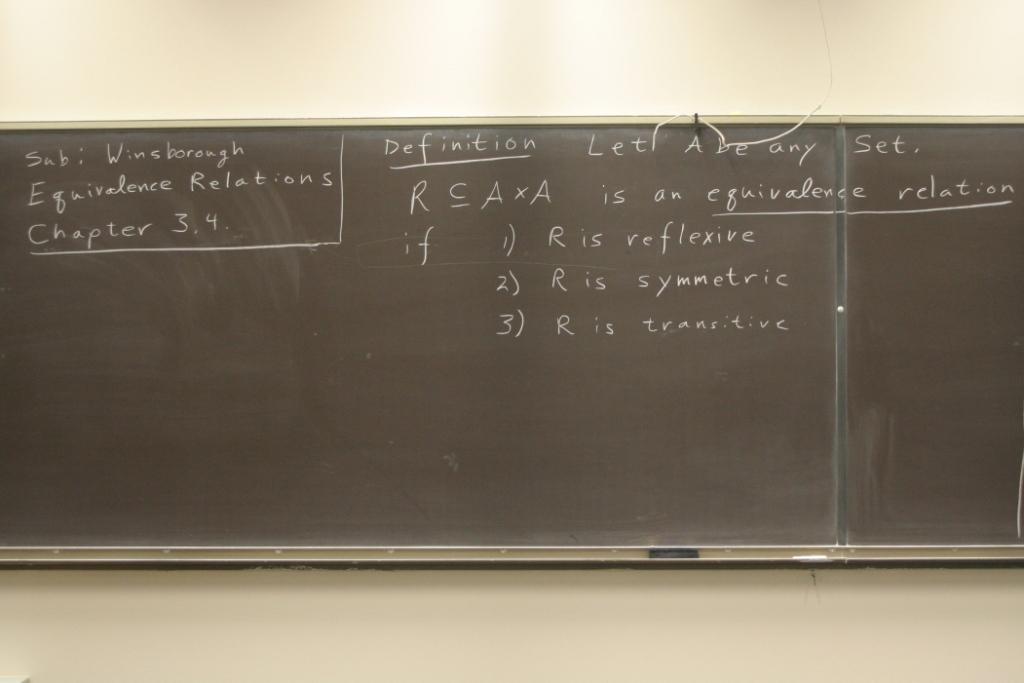 Sub: Winsborough
Equivalence Relations
Chapter 3.4.
Definition Let A be any Set.
R ⊆ A × A is an equivalence relation
if 1) R is reflexive
2) R is symmetric
3) R is transitive